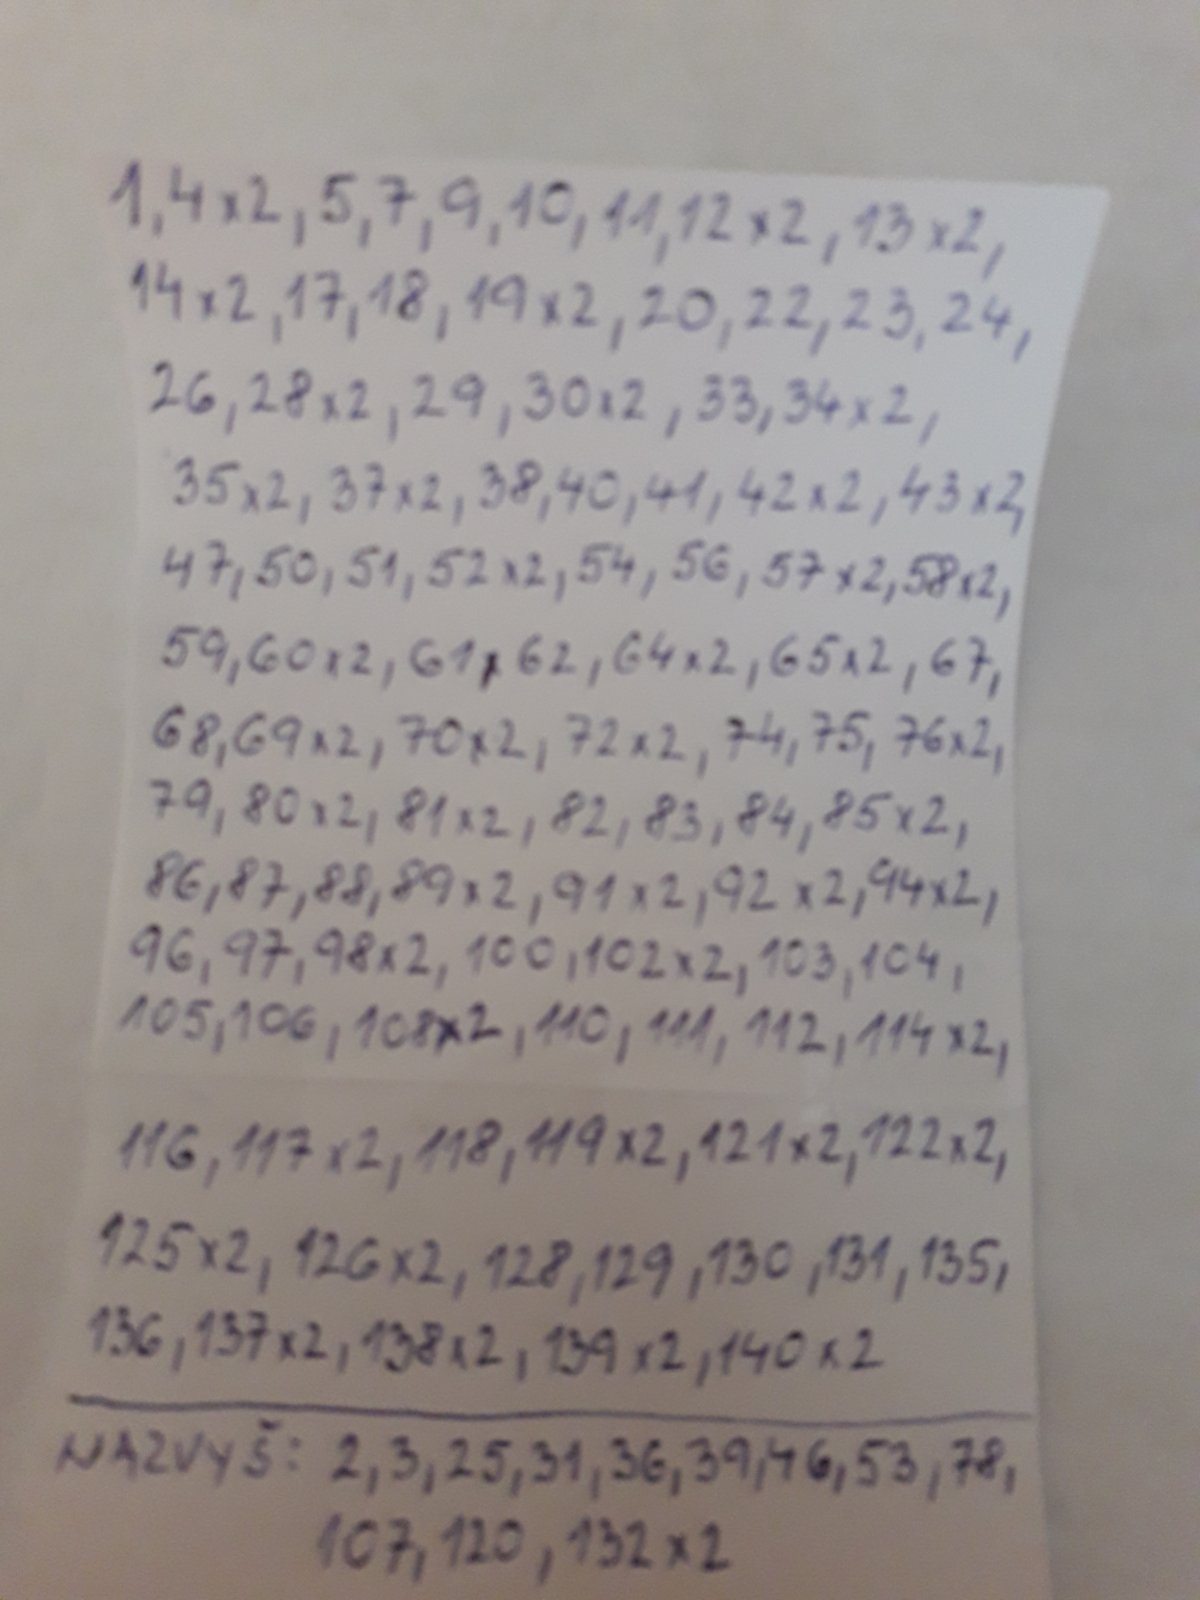 1,4x2,5,7,9,10,11,12x2,13x2,
14x2,17,18,19x2,20,22,23,24,
26,28x2,29,30x2,33,34x2,
35x2,37x2,38,40,41,42x2,43x2,
47,50,51,52x2,54,56,57x2,58x2,
59,60x2,61,62,64x2,65x2,67,
68,69x2,70x2,72x2,74,75,76x2,
79,80x2,81x2,82,83,84,85x2,
86,87,88,89x2,91x2,92x2,94x2,
96,97,98x2,100,102x2,103,104,
105,106,108x2,110,111,112,114x2,
116,117x2,118,119x2,121x2,122x2,
125x2,126x2,128,129,130,131,135,
136,137x2,138x2,139x2,140x2
NAZVYŠ: 2,3,25,31,36,39,46,53,78,
107,120,132x2